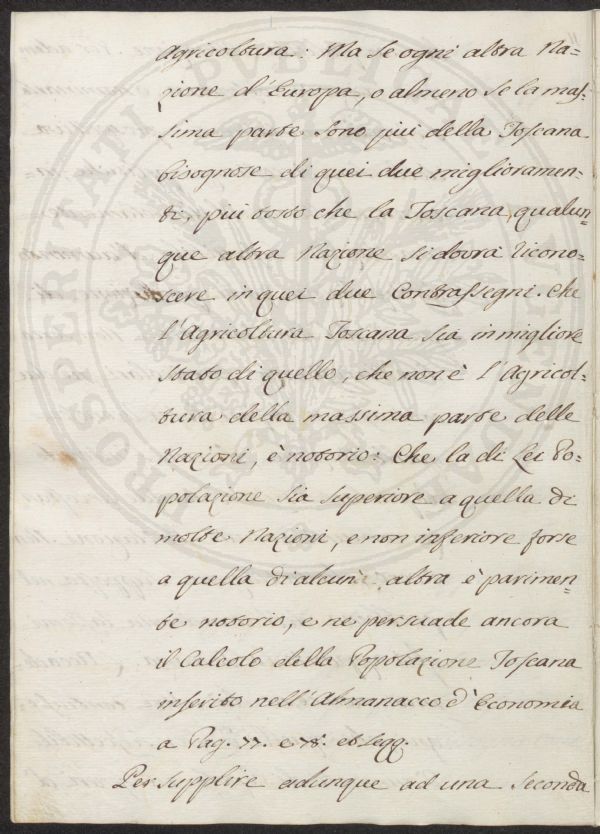 Agricoltura: Ma se ogni altra Na=
zione d'Europa, o almeno se la mas=
sima parte sono più della Toscana
bisognose di quei due miglioramen=
ti, più tosto che la Toscana, qualun=
que altra Nazione si dovrà ricono=
scere in quei due Contrassegni. Che
l'Agricoltura Toscana sia in migliore
stato di quello, che non è l'Agricol=
tura della massima parte delle
Nazioni, è notorio: Che la di Lei Po=
polazione sia superiore a quella di
molte Nazioni, e non inferiore forse
a quella di alcun' altra è parimen=
te notorio, e ne persuade ancora
il Calcolo della Popolazione Toscana
inserito nell'Almanacco d'Economia
a Pag. 77. e 78. et seqq.
Per supplire adunque ad una seconda